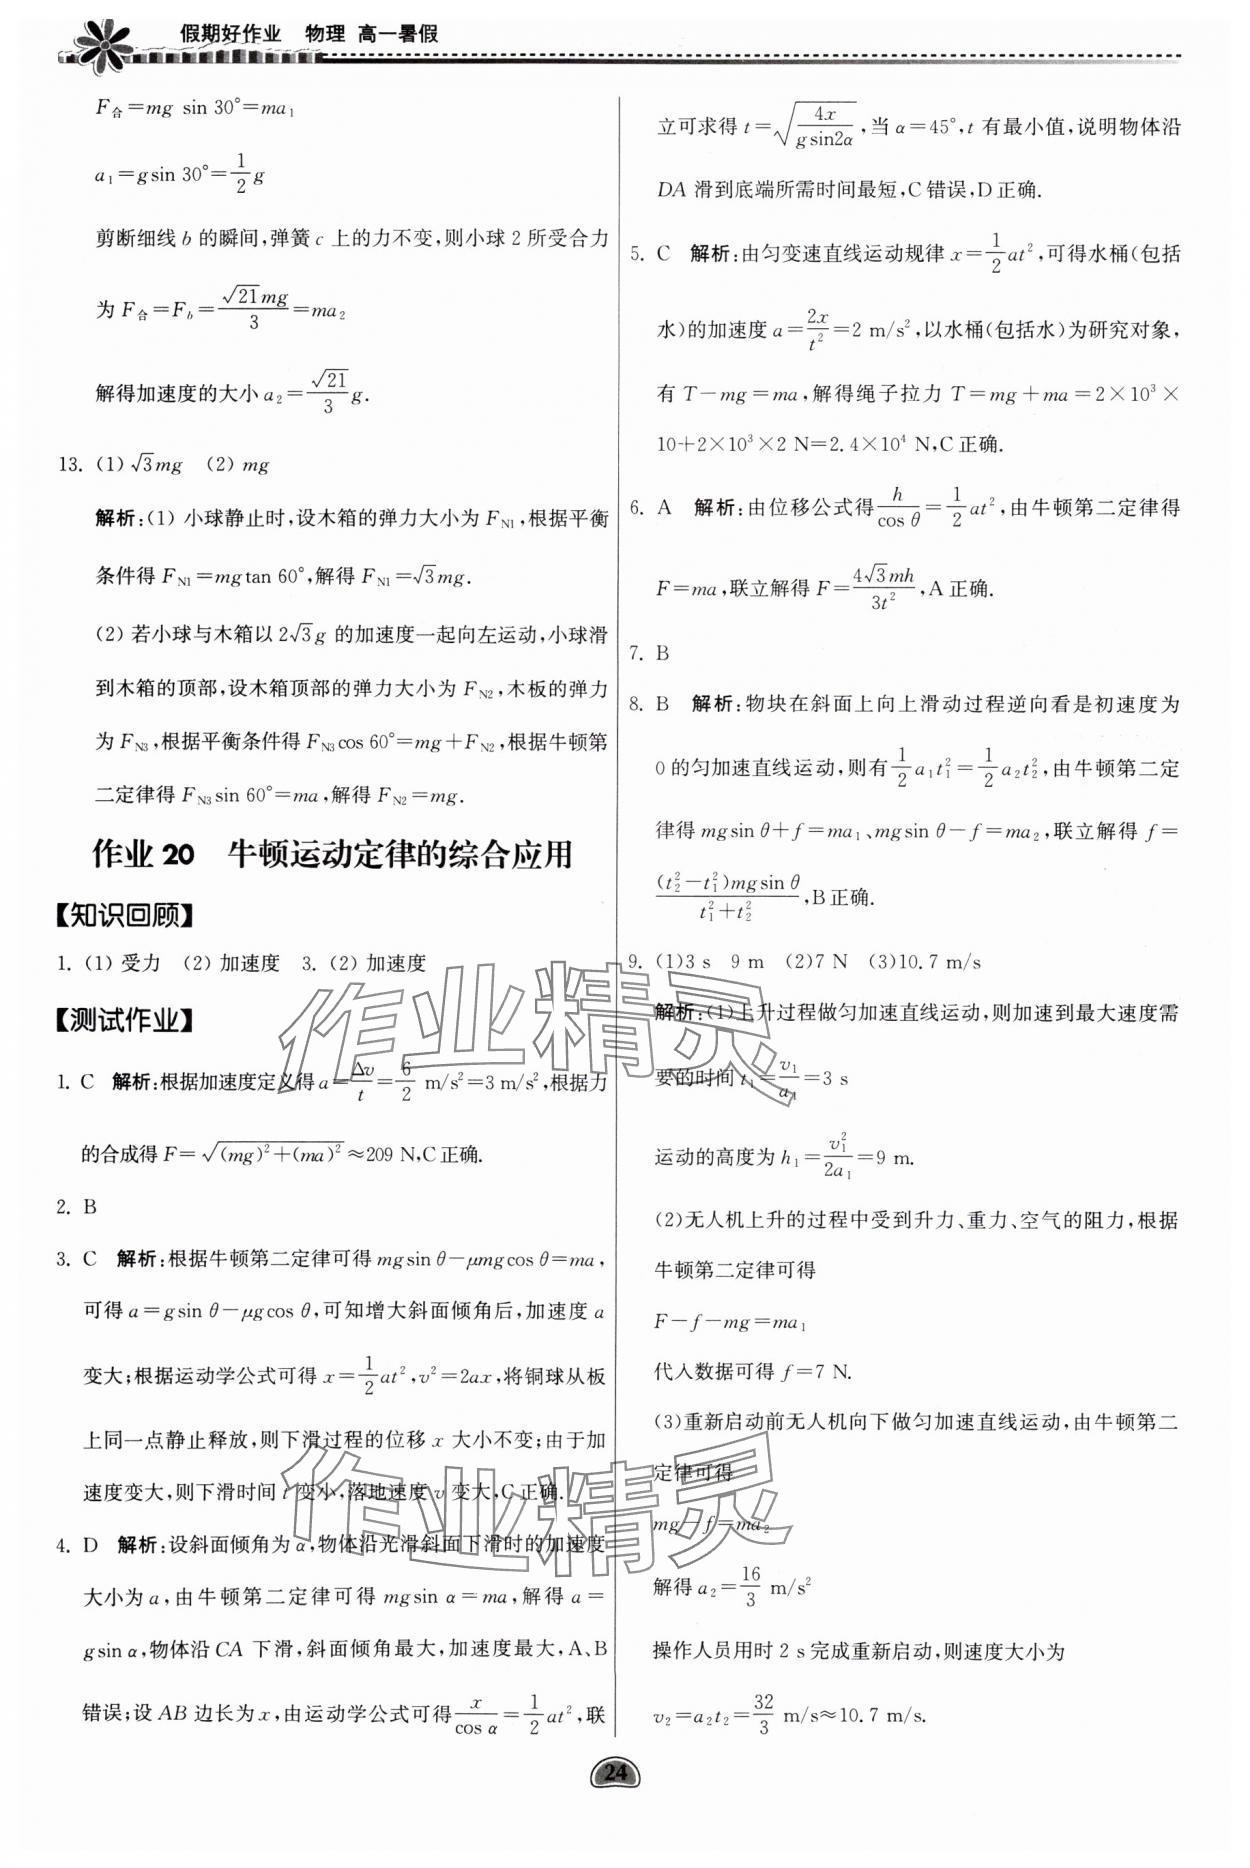 假期好作业 物理 高一暑假
F合=mg sin 30°=ma₁
a₁=gsin 30°=1/2 g
剪断细线 b 的瞬间,弹簧 c 上的力不变,则小球 2 所受合力
为 F合=F_b=√21mg/3=ma₂
解得加速度的大小 a₂=√21/3 g.
13. (1) √3mg (2) mg
解析:(1) 小球静止时,设木箱的弹力大小为 F_N1,根据平衡
条件得 F_N1=mgtan 60°,解得 F_N1=√3mg.
(2) 若小球与木箱以 2√3g 的加速度一起向左运动,小球滑
到木箱的顶部,设木箱顶部的弹力大小为 F_N2,木板的弹力
为 F_N3,根据平衡条件得 F_N3cos 60°=mg+F_N2,根据牛顿第
二定律得 F_N3sin 60°=ma,解得 F_N2=mg.
作业 20 牛顿运动定律的综合应用
【知识回顾】
1. (1) 受力 (2) 加速度 3. (2) 加速度
【测试作业】
1. C 解析:根据加速度定义得 a=Δv/t=6/2 m/s²=3 m/s²,根据力
的合成得 F=√((mg)²+(ma)²)≈209 N,C正确.
2. B
3. C 解析:根据牛顿第二定律可得 mgsin θ-μmgcos θ=ma,
可得 a=gsin θ-μgcos θ,可知增大斜面倾角后,加速度 a
变大;根据运动学公式可得 x=1/2 at²,v²=2ax,将铜球从板
上同一点静止释放,则下滑过程的位移 x 大小不变;由于加
速度变大,则下滑时间 t 变小,落地速度 v 变大,C正确.
4. D 解析:设斜面倾角为 α,物体沿光滑斜面下滑时的加速度
大小为 a,由牛顿第二定律可得 mgsin α=ma,解得 a=
gsin α,物体沿 CA 下滑,斜面倾角最大,加速度最大,A、B
错误;设 AB 边长为 x,由运动学公式可得 x/cos α=1/2 at²,联
立可求得 t=√(4x/gsin2α),当 α=45°,t 有最小值,说明物体沿
DA 滑到底端所需时间最短,C错误,D正确.
5. C 解析:由匀变速直线运动规律 x=1/2 at²,可得水桶(包括
水)的加速度 a=2x/t²=2 m/s²,以水桶(包括水)为研究对象,
有 T-mg=ma,解得绳子拉力 T=mg+ma=2×10³×
10+2×10³×2 N=2.4×10⁴ N,C正确.
6. A 解析:由位移公式得 h/cos θ=1/2 at²,由牛顿第二定律得
F=ma,联立解得 F=4√3mh/3t²,A正确.
7. B
8. B 解析:物块在斜面上向上滑动过程逆向看是初速度为
0的匀加速直线运动,则有 1/2 a₁t₁²=1/2 a₂t₂²,由牛顿第二定
律得 mgsin θ+f=ma₁、mgsin θ-f=ma₂,联立解得 f=
(t₂²-t₁²)mgsin θ/(t₁²+t₂²),B正确.
9. (1)3 s 9 m (2)7 N (3)10.7 m/s
解析:(1)上升过程做匀加速直线运动,则加速到最大速度需
要的时间 t₁=v₁/a₁=3 s
运动的高度为 h₁=v₁²/2a₁=9 m.
(2)无人机上升的过程中受到升力、重力、空气的阻力,根据
牛顿第二定律可得
F-f-mg=ma₁
代入数据可得 f=7 N.
(3)重新启动前无人机向下做匀加速直线运动,由牛顿第二
定律可得
mg-f=ma₂
解得 a₂=16/3 m/s²
操作人员用时 2 s 完成重新启动,则速度大小为
v₂=a₂t₂=32/3 m/s≈10.7 m/s.
24
作业精灵
作业精灵